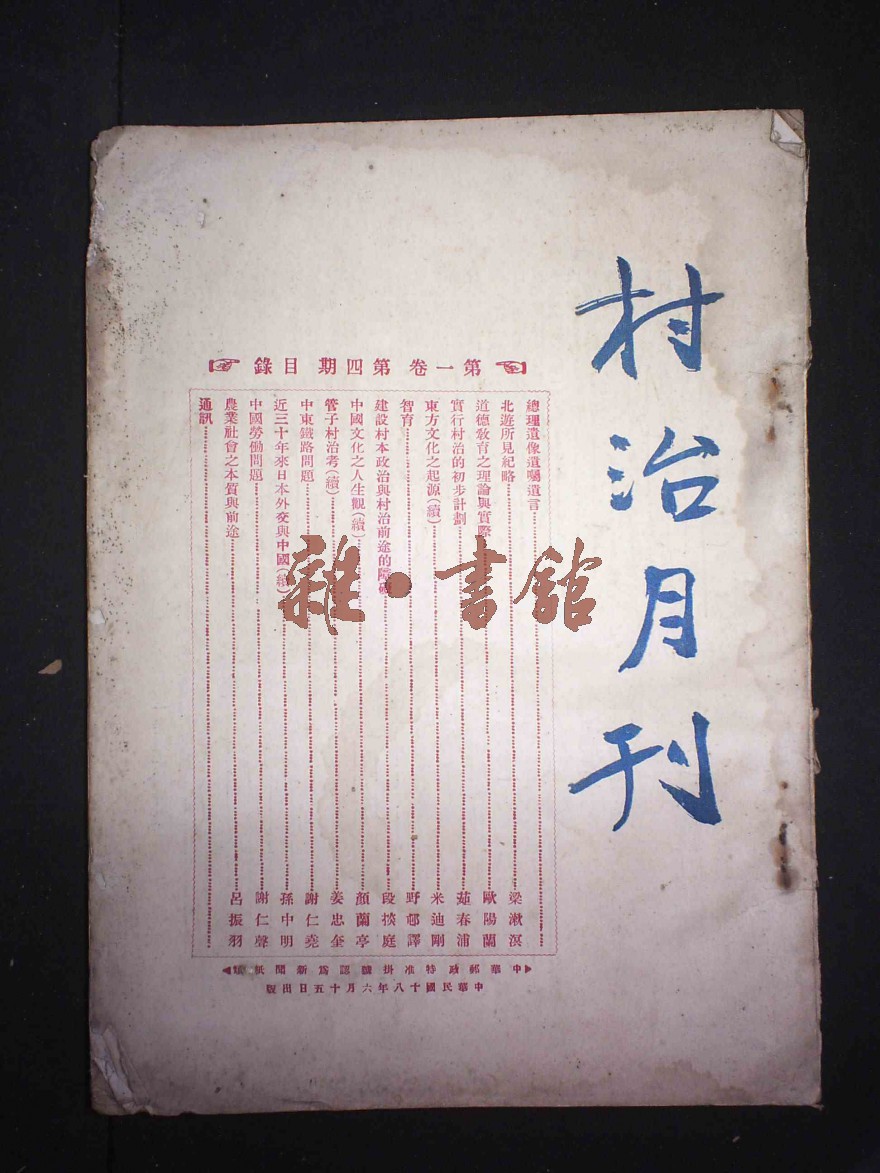 村治月刊
第一卷第四期目錄
總理遺像遺囑遺言
北遊所見紀略 梁漱溟
道德教育之理論與實際 歐陽蘭
實行村治的初步計劃 茹春浦
東方文化之起源(續) 米迪剛
智育 野邨譯
建設村本政治與村治前途的障礙 段揆庭
中國文化之人生觀(續) 顏蘭亭
管子村治考(續) 姜忠奎
中東鐵路問題 謝仁堯
近三十年來日本外交與中國(續) 孫中明
中國勞働問題 謝仁聲
農業社會之本質與前途 呂振羽
通訊
中華郵政特准掛號認爲新聞紙類
中華民國十八年六月十五日出版
雜·書館